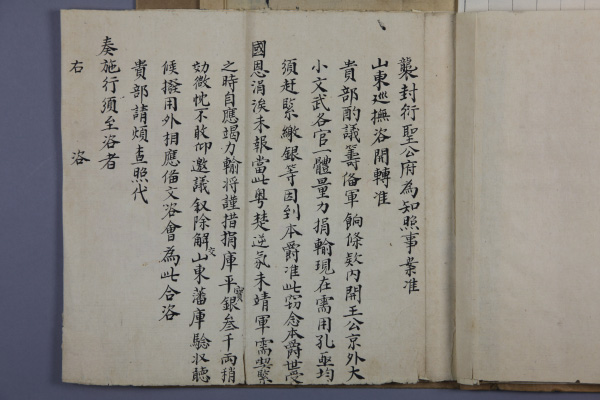 襲封衍聖公府為知照事案准
山東巡撫咨開轉准
貴部酌議籌俻軍餉條欵內開王公京外大
小文武各官一體量力捐輸現在需用孔亟均
須赶緊繳銀等因到本爵准此窃念本爵世受
國恩涓涘未報當此粵楚逆氛未靖軍需緊
之時自應竭力輸將謹措捐庫平寳銀叁千兩稍
効微忱不敢仰邀議叙除解交山東藩庫驗収聴
候撥用外相應俻文咨會為此合咨
貴部請煩查照代
奏施行須至咨者
右 咨